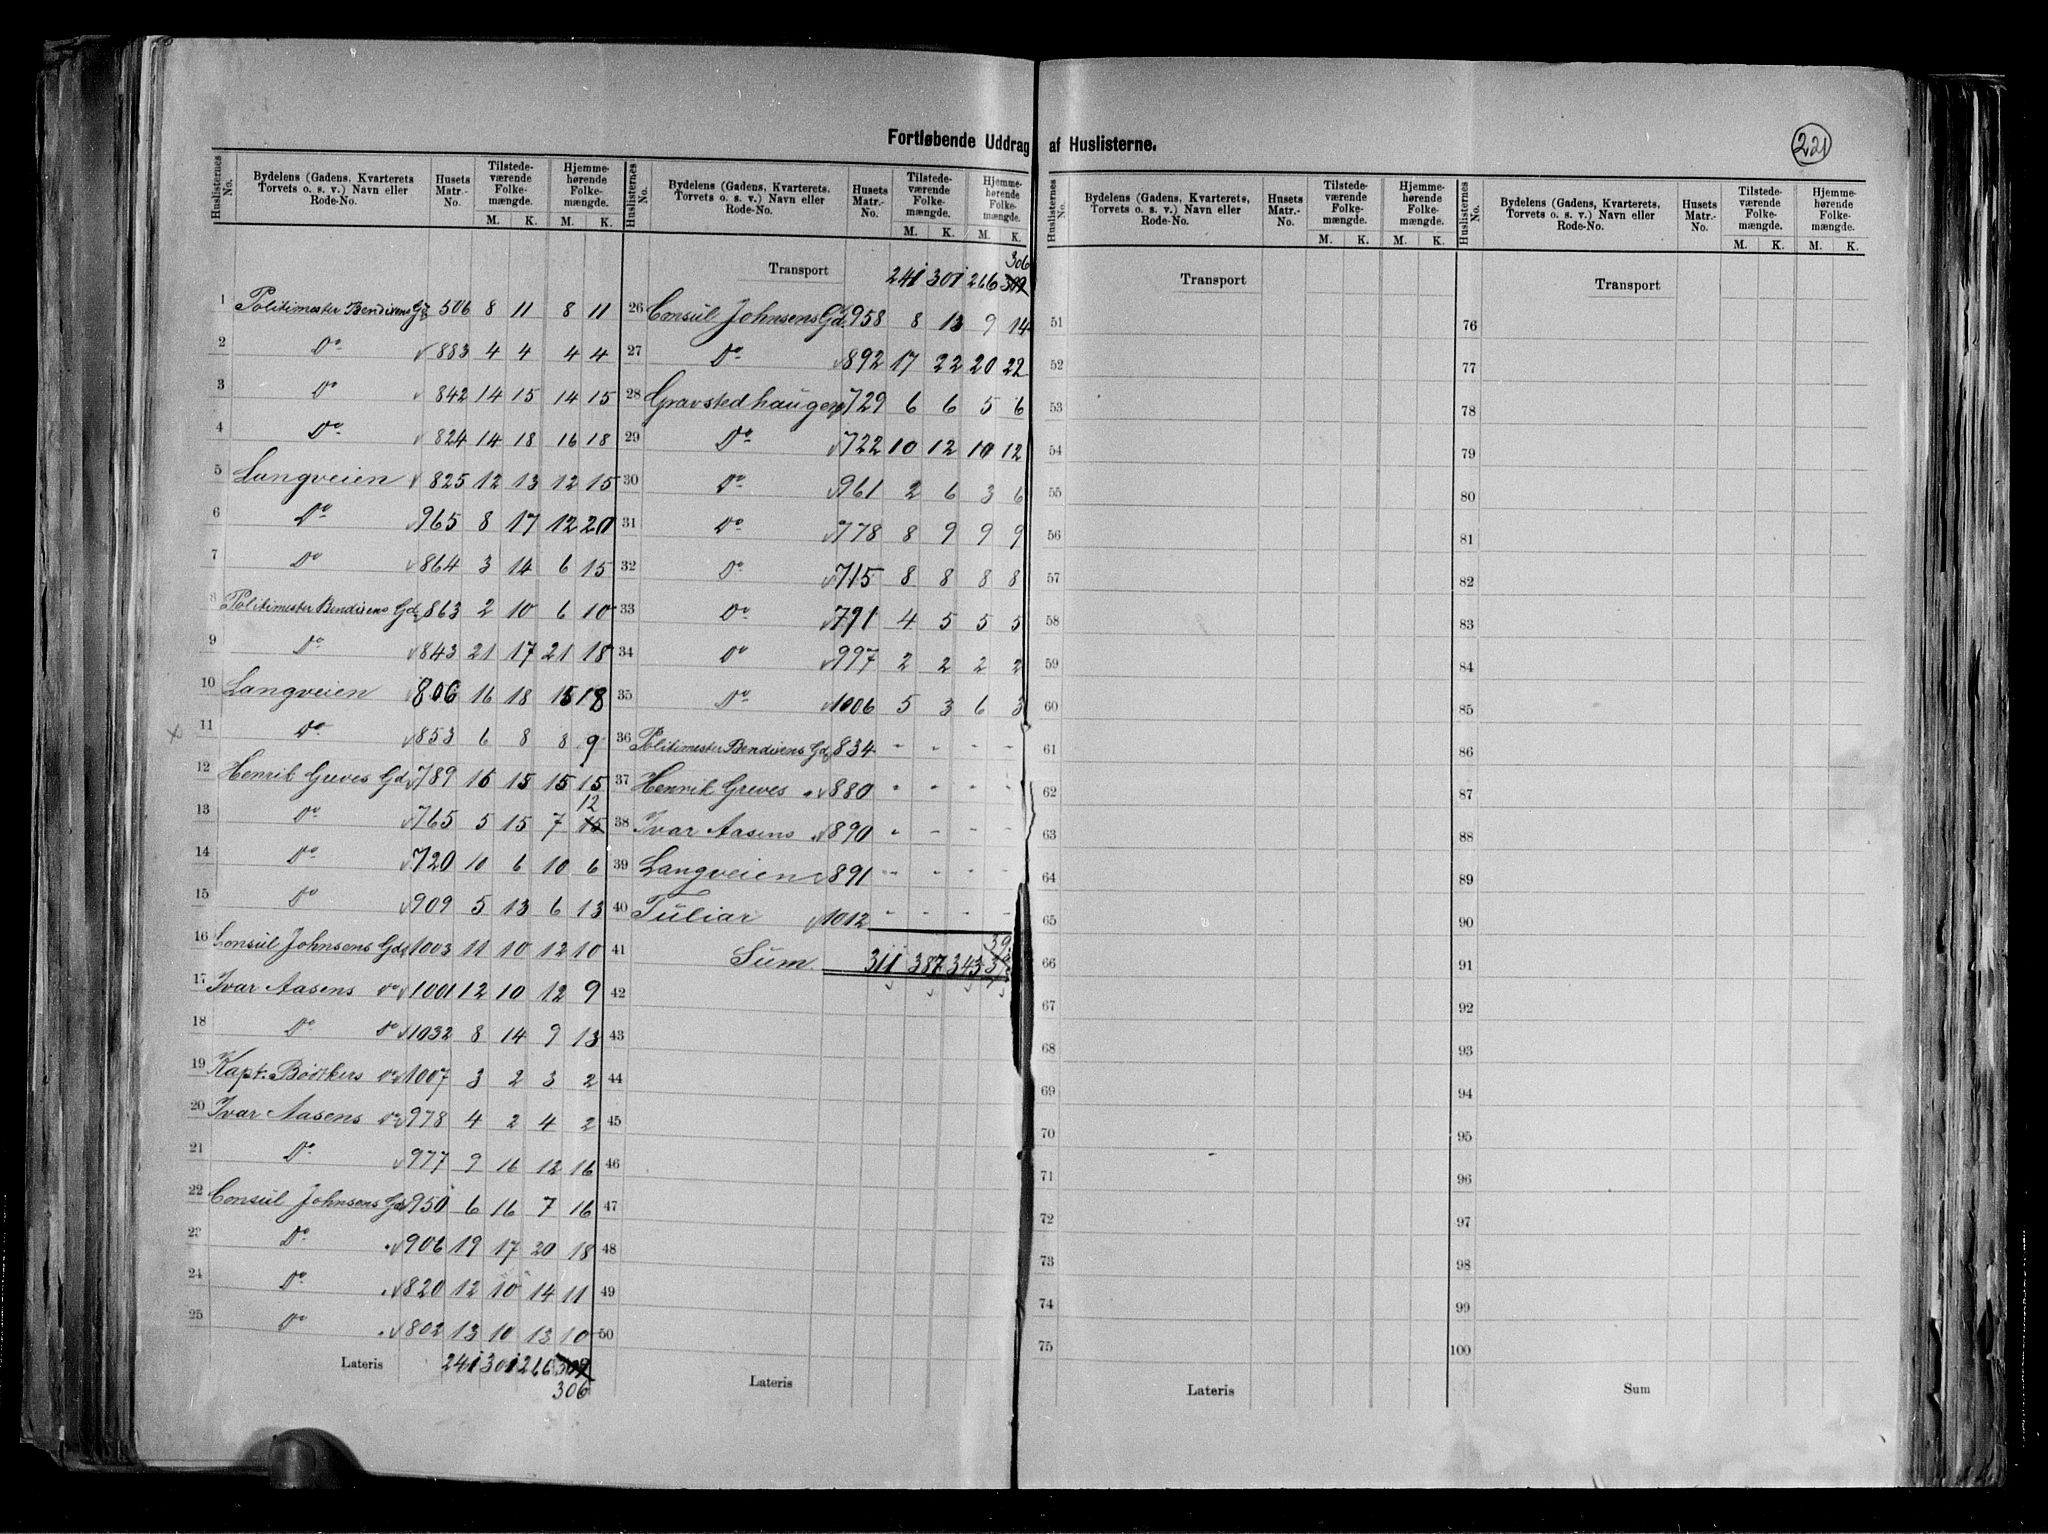 Fortløbende Uddrag af Huslisterne.
221
Huslisternes No. Bydelens (Gadens, Kvarterets, Torvets o. s. v.) Navn eller Rode-No. Husets Matr.-No. Tilstedeværende Folkemængde. M. K. Hjemmehørende Folkemængde. M. K.
1 Politimester Bendixens Gd 506 8 11 8 11
2 Do 883 4 4 4 4
3 Do 842 14 15 14 15
4 Do 824 14 18 16 18
5 Langveien 825 12 13 12 15
6 Do 965 8 17 12 20
7 Do 864 3 14 6 15
8 Politimester Bendixens Gd 863 2 10 6 10
9 Do 843 21 17 21 18
10 Langveien 806 16 18 15 18
11 Do 853 6 8 8 9
12 Henrik Greves Gd 789 16 15 15 15
13 Do 765 5 15 7 15 12
14 Do 720 10 6 10 6
15 Do 909 5 13 6 13
16 Consul Johnsens Gd 1003 11 10 12 10
17 Ivar Aasens Do 1001 12 10 12 9
18 Do Do 1032 8 14 9 13
19 Kapt. Bødtkers Do 1007 3 2 3 2
20 Ivar Aasens Do 978 4 2 4 2
21 Do 977 9 16 12 16
22 Consul Johnsens Gd 950 6 16 7 16
23 Do 906 19 17 20 18
24 Do 820 12 10 14 11
25 Do 802 13 10 13 10
Lateris 241 301 266 309
306
Huslisternes No. Bydelens (Gadens, Kvarterets, Torvets o. s. v.) Navn eller Rode-No. Husets Matr.-No. Tilstedeværende Folkemængde. M. K. Hjemmehørende Folkemængde. M. K.
306
Transport 241 301 266 309
26 Consul Johnsens Gd 958 8 13 9 14
27 Do 892 17 22 20 22
28 Gravstedhaugen 729 6 6 5 6
29 Do 722 10 12 10 12
30 Do 961 2 6 3 6
31 Do 778 8 9 9 9
32 Do 715 8 8 8 8
33 Do 791 4 5 5 5
34 Do 997 2 2 2 2
35 Do 1006 5 3 6 3
36 Politimester Bendixens Gd 834 - - - -
37 Henrik Greves " 880 - - - -
38 Ivar Aasens " 890 - - - -
39 Langveien 891 - - - -
40 Tuliar 1012 - - - -
41 Sum 311 387 343
42
43
44
45
46
47
48
49
50
Lateris
Huslisternes No. Bydelens (Gadens, Kvarterets, Torvets o. s. v.) Navn eller Rode-No. Husets Matr.-No. Tilstedeværende Folkemængde. M. K. Hjemmehørende Folkemængde. M. K.
Transport
51
52
53
54
55
56
57
58
59
60
61
62
63
64
65
66
67
68
69
70
71
72
73
74
75
Lateris
Huslisternes No. Bydelens (Gadens, Kvarterets, Torvets o. s. v.) Navn eller Rode-No. Husets Matr.-No. Tilstedeværende Folkemængde. M. K. Hjemmehørende Folkemængde. M. K.
Transport
76
77
78
79
80
81
82
83
84
85
86
87
88
89
90
91
92
93
94
95
96
97
98
99
100
Sum